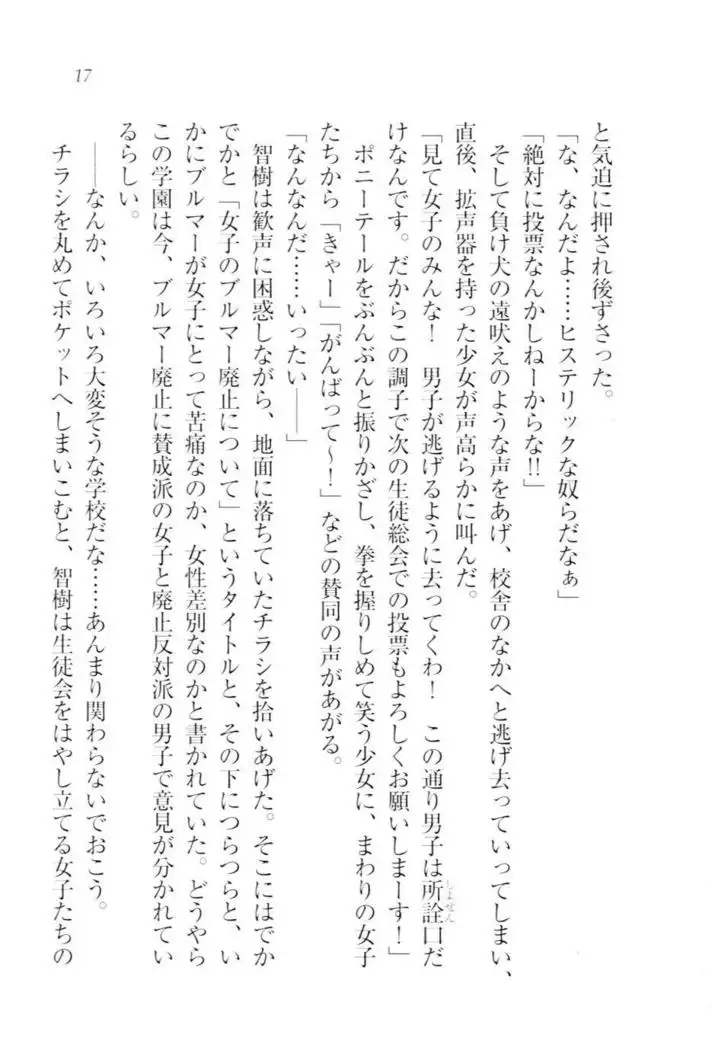 17
と気迫に押され後ずさった。
「な、なんだよ……ヒステリックな奴らだなぁ」
「絶対に投票なんかしねーからな!!」
そして負け犬の遠吠えのような声をあげ、校舎のなかへと逃げ去っていってしまい、
直後、拡声器を持った少女が声高らかに叫んだ。
「見て女子のみんな！　男子が逃げるように去ってくわ！　この通り男子は所詮口だ
しょせん
けなんです。だからこの調子で次の生徒総会での投票もよろしくお願いしまーす！」
ポニーテールをぶんぶんと振りかざし、拳を握りしめて笑う少女に、まわりの女子
たちから「きゃー」「がんばって〜！」などの賛同の声があがる。
「なんなんだ……いったい――」
智樹は歓声に困惑しながら、地面に落ちていたチラシを拾いあげた。そこにはでか
でかと「女子のブルマー廃止について」というタイトルと、その下につらつらと、い
かにブルマーが女子にとって苦痛なのか、女性差別なのかと書かれていた。どうやら
この学園は今、ブルマー廃止に賛成派の女子と廃止反対派の男子で意見が分かれてい
るらしい。
――なんか、いろいろ大変そうな学校だな……あんまり関わらないでおこう。
チラシを丸めてポケットへしまいこむと、智樹は生徒会をはやし立てる女子たちの